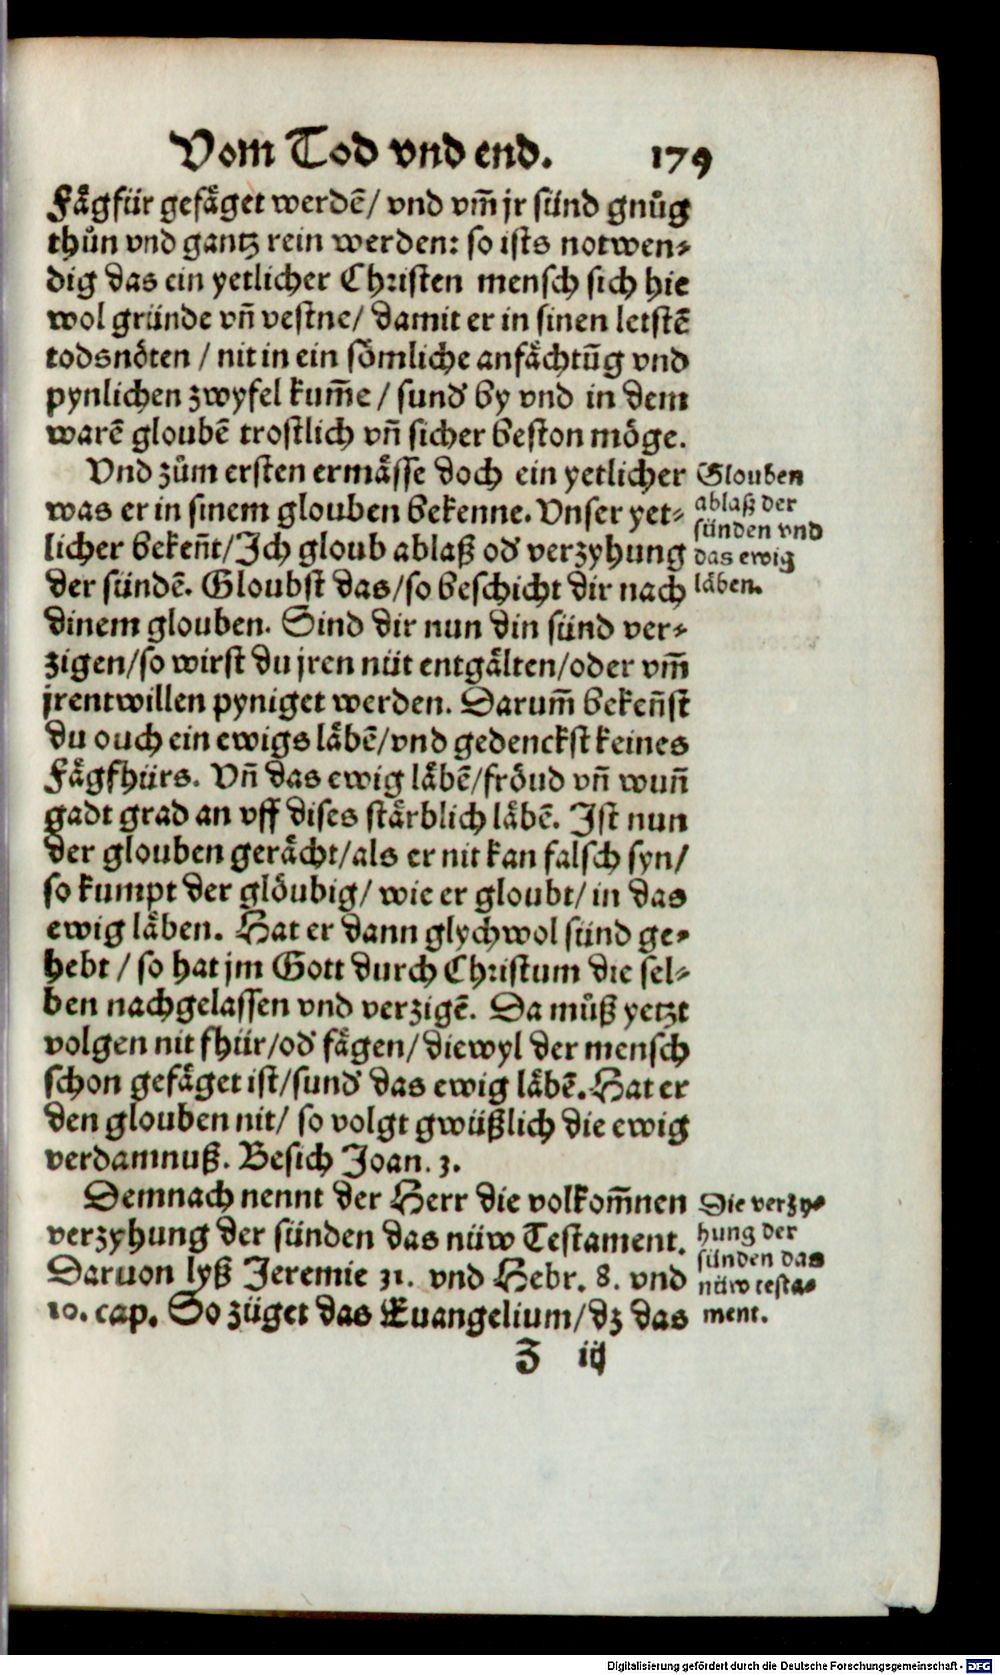 Vom Tod vnd end. 179
Fågfür gefåget werdē/ vnd vm̄ jr sünd gnůg
thůn vnd gantz rein werden: so ists notwen-
dig das ein yetlicher Christen mensch sich hie
wol gründe vn̄ vestne/ damit er in sinen letstē
todsnöten / nit in ein sömliche anfåchtūg vnd
pynlichen zwyfel kum̄e / sund' by vnd in dem
warē gloubē trostlich vn̄ sicher beston möge.
Vnd zům ersten ermåsse doch ein yetlicher
was er in sinem glouben bekenne. Vnser yet-
licher beken̄t/ Ich gloub ablaß od' verzyhung
der sündē. Gloubst das/ so beschicht dir nach
dinem glouben. Sind dir nun din sünd ver-
zigen/ so wirst du jren nüt entgålten/ oder vm̄
jrentwillen pyniget werden. Darum̄ beken̄st
du ouch ein ewigs låbē/ vnd gedenckst keines
Fågfhürs. Vn̄ das ewig låbē/ fröud vn̄ wun̄
gadt grad an vff dises stårblich låbē. Ist nun
der glouben geråcht/ als er nit kan falsch syn/
so kumpt der glöubig/ wie er gloubt/ in das
ewig låben. Hat er dann glychwol sünd ge-
hebt / so hat jm Gott durch Christum die sel-
ben nachgelassen vnd verzigē. Da můß yetzt
volgen nit fhür/ od' fågen/ diewyl der mensch
schon gefåget ist/ sund' das ewig låbē. Hat er
den glouben nit/ so volgt gwüßlich die ewig
verdamnuß. Besich Joan. 3.
Demnach nennt der Herr die volkom̄nen
verzyhung der sünden das nüw Testament.
Daruon lyß Jeremie 31. vnd Hebr. 8. vnd
10. cap. So züget das Euangelium/ dz das
Z iij
Glouben
ablaß der
sünden vnd
das ewig
låben.
Die verzy-
hung der
sünden das
nüw testa-
ment.
Digitalisierung gefördert durch die Deutsche Forschungsgemeinschaft - DFG